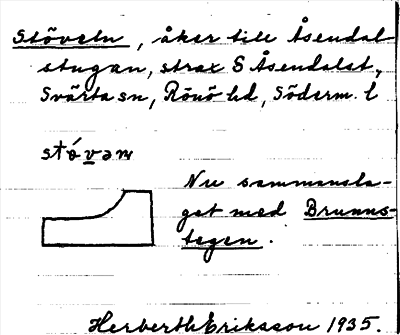 Stöveln, åker till Åsendal-
stugan, strax S Åsendalst.,
Svärta sn, Rönö hd, Söderm. l
stövəṇ
Nu sammansla-
get med Brunns-
tegen.
Herberth Eriksson 1935.